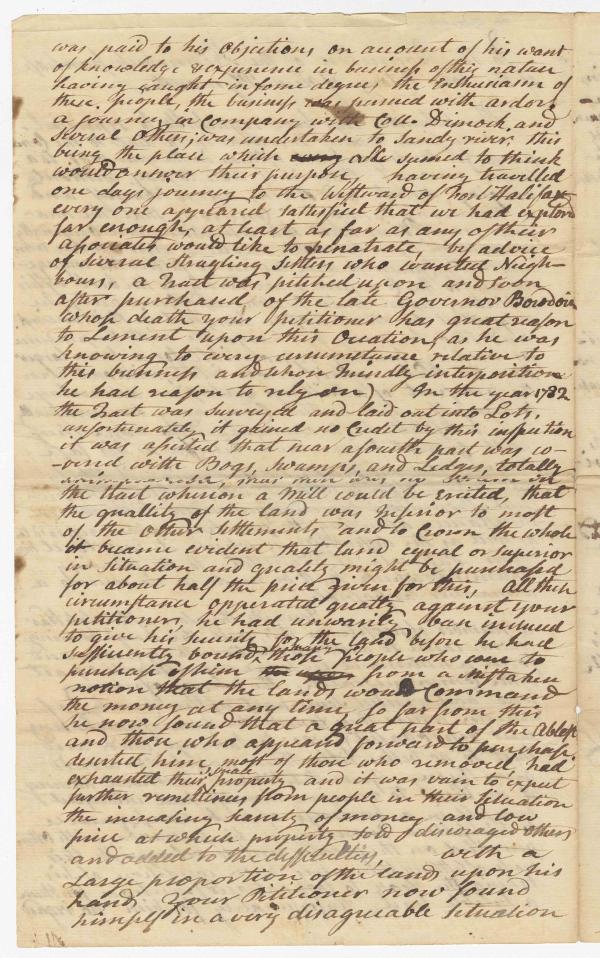 was paid to his Objections on account of his want
of knowledge & experience in business of this nature
having caught in some degree, the Enthusiasm of
these people, the business was persued with ardor,
a journey in Company with Collo. Dimock and
several Others, was undertaken to Sandy river. this
being the place which they all seemed to think
would answer their purpose, having travelled
one days journey to the Westward of Fort Halifax
every one appeared sattisfied that we had explord
far enough, at least as far as any of their
associates would like to penetrate, by advice
of several Stragling Settlers who wanted Neigh-
bours, a Tract was pitched upon and soon
after purchased of the late Governor Bowdoin
whose death your petitioner has great reason
to Lement upon this Ocation, as he was
knowing to every circumstance relative to
this business and whose friendly interposition
he had reason to rely on) In the year 1782
the Tract was Surveyed and laid out into Lots,
unfortunately it gained no Credit by this inspection
it was asserted that near a fourth part was co-
-vered with Bogs, Swamps, and Ledges, totally
the tract whereon a Mill could be Erected, that
the quallity of the land was Inferior to most
of the Other settlements and to Crown the whole
it became evident that land equal or superior
in situation and quality might be purchased
for about half the price given for this, All these
circumstance opperated greatly against your
petitioner, he had unwarily been induced
to give his security for the land before he had
sufficiently bound those many people who were to
purchase of him from a Mistaken
notion that the lands would Command
the money at any time, so far from this
he now found that a great part of the Ablest
and those who appeard forward to purchase
deserted him, most of those who removed had
exhausted their small property and it was vain to expect
further remittences from people in their Situation
the increasing scarcity of money and low
price at which property sold discoraged others
and added to the difficulties, with a
Large proportion of the lands upon his
hands Your Petitioner now found
himself in a very disagreable Situation